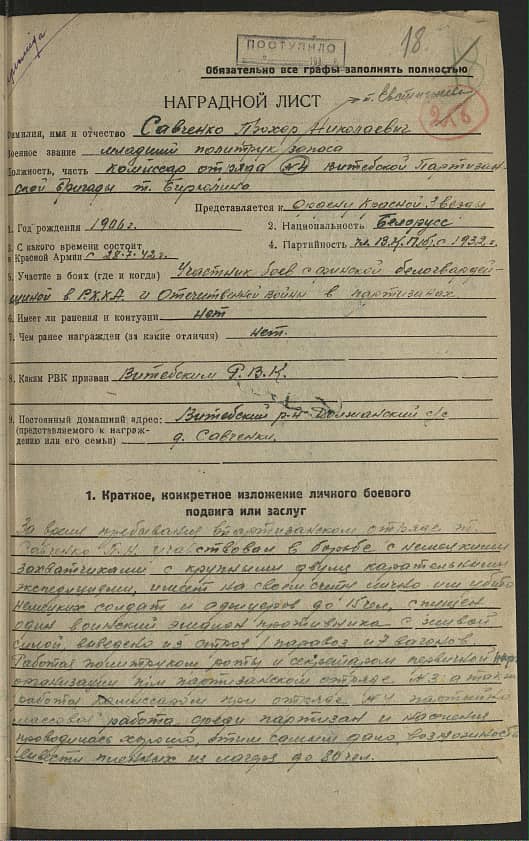 ПОСТУПИЛО
18.
Обязательно все графы заполнять полностью
НАГРАДНОЙ ЛИСТ
т. Евстигнеев
Фамилия, имя и отчество Савченко Прохор Николаевич
Военное звание младший политрук запаса
Должность, часть комиссар отряда №4 Витебской Партизан-
ской бригады т. Бирюлина
Представляется к Ордену Красной Звезды
1. Год рождения 1906 г. 2. Национальность Белорусс
3. С какого времени состоит
в Красной Армии с 28.7.42 г. 4. Партийность чл. ВКП(б) с 1932 г.
5. Участие в боях (где и когда) Участник боев с финской белогвардей-
щиной в РККА и Отечественной войны в партизанах
6. Имеет ли ранения и контузии нет
7. Чем ранее награжден (за какие отличия) нет.
8. Каким РВК призван Витебским Р.В.К.
9. Постоянный домашний адрес: Витебский р-н Должанский с/с
(представляемого к награж-
дению или его семьи) д. Савченки.
1. Краткое, конкретное изложение личного боевого
подвига или заслуг
За время пребывания в партизанском отряде т.
Савченко П.Н. участвовал в борьбе с немецкими
захватчиками с крупными двумя карательными
экспедициями, имеет на своем счету лично им убито
немецких солдат и офицеров до 15 чел, спущен
один воинский эшелон противника с живой
силой, выведено из строя 1 паровоз и 7 вагонов.
Работая политруком роты и секретарем первичной парт
организации при партизанском отряде №3 а также
работая комиссаром при отряде №4 партийно
массовая работа среди партизан и населения
проводилась хорошо, этим самым дало возможность
вывести пленных из лагеря до 80 чел.